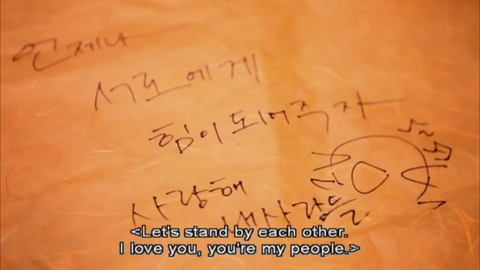 언제나
서로에게
힘이 되어주자
사랑해
내사람들
<Let's stand by each other.
I love you, you're my people.>